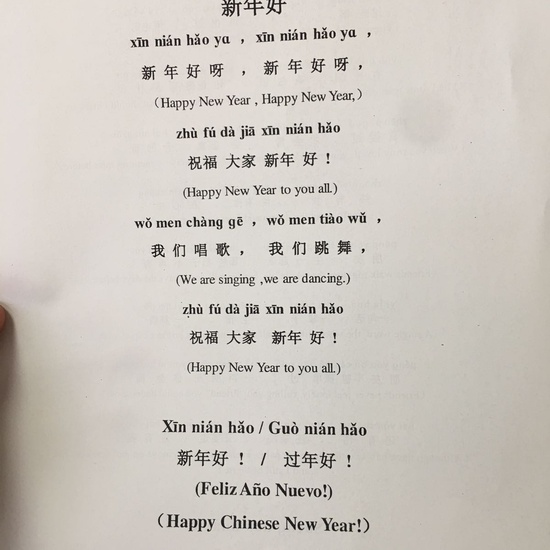 新年好
xīn nián hǎo yɑ , xīn nián hǎo yɑ ,
新 年 好 呀 ， 新 年 好 呀，
（Happy New Year , Happy New Year,）
zhù fú dà jiā xīn nián hǎo
祝福 大家 新年 好！
(Happy New Year to you all.)
wǒ men chàng gē , wǒ men tiào wǔ ,
我 们 唱 歌 ， 我 们 跳 舞，
(We are singing ,we are dancing.)
zhù fú dà jiā xīn nián hǎo
祝福 大家 新年 好！
(Happy New Year to you all.)
Xīn nián hǎo / Guò nián hǎo
新年好！ / 过年好！
(Feliz Año Nuevo!)
（Happy Chinese New Year!）